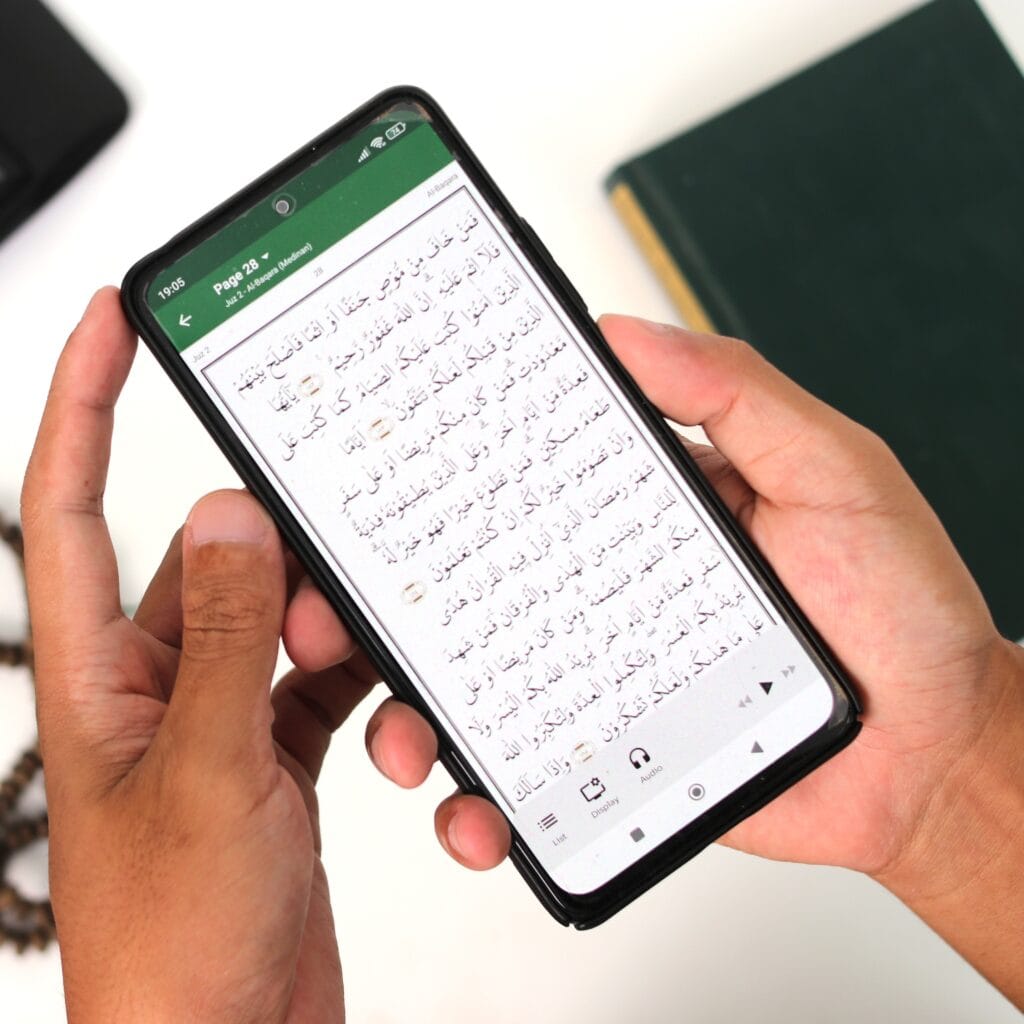 19:05
74
Page 28
Juz 2 - Al-Baqara (Medinan)
Juz 2
28
Al-Baqara
فَمَنْ خَافَ مِنْ مُّوْصٍ جَنَفًا اَوْ اِثْمًا فَاَصْلَحَ بَيْنَهُمْ
فَلَآ اِثْمَ عَلَيْهِ ۗ اِنَّ اللّٰهَ غَفُوْرٌ رَّحِيْمٌ يٰٓاَيُّهَا
الَّذِيْنَ اٰمَنُوْا كُتِبَ عَلَيْكُمُ الصِّيَامُ كَمَا كُتِبَ عَلَى
الَّذِيْنَ مِنْ قَبْلِكُمْ لَعَلَّكُمْ تَتَّقُوْنَ اَيَّامًا
مَّعْدُوْدٰتٍ ۗ فَمَنْ كَانَ مِنْكُمْ مَّرِيْضًا اَوْ عَلٰى سَفَرٍ
فَعِدَّةٌ مِّنْ اَيَّامٍ اُخَرَ ۗ وَعَلَى الَّذِيْنَ يُطِيْقُوْنَهٗ فِدْيَةٌ
طَعَامُ مِسْكِيْنٍ ۗ فَمَنْ تَطَوَّعَ خَيْرًا فَهُوَ خَيْرٌ لَّهٗ ۗ
وَاَنْ تَصُوْمُوْا خَيْرٌ لَّكُمْ اِنْ كُنْتُمْ تَعْلَمُوْنَ
شَهْرُ رَمَضَانَ الَّذِيْٓ اُنْزِلَ فِيْهِ الْقُرْاٰنُ هُدًى
لِّلنَّاسِ وَبَيِّنٰتٍ مِّنَ الْهُدٰى وَالْفُرْقَانِ ۚ فَمَنْ شَهِدَ
مِنْكُمُ الشَّهْرَ فَلْيَصُمْهُ ۗ وَمَنْ كَانَ مَرِيْضًا اَوْ عَلٰى
سَفَرٍ فَعِدَّةٌ مِّنْ اَيَّامٍ اُخَرَ ۗ يُرِيْدُ اللّٰهُ بِكُمُ الْيُسْرَ وَلَا
يُرِيْدُ بِكُمُ الْعُسْرَ ۖ وَلِتُكْمِلُوا الْعِدَّةَ وَلِتُكَبِّرُوا اللّٰهَ
عَلٰى مَا هَدٰىكُمْ وَلَعَلَّكُمْ تَشْكُرُوْنَ وَاِذَا سَاَلَكَ
List
Display
Audio